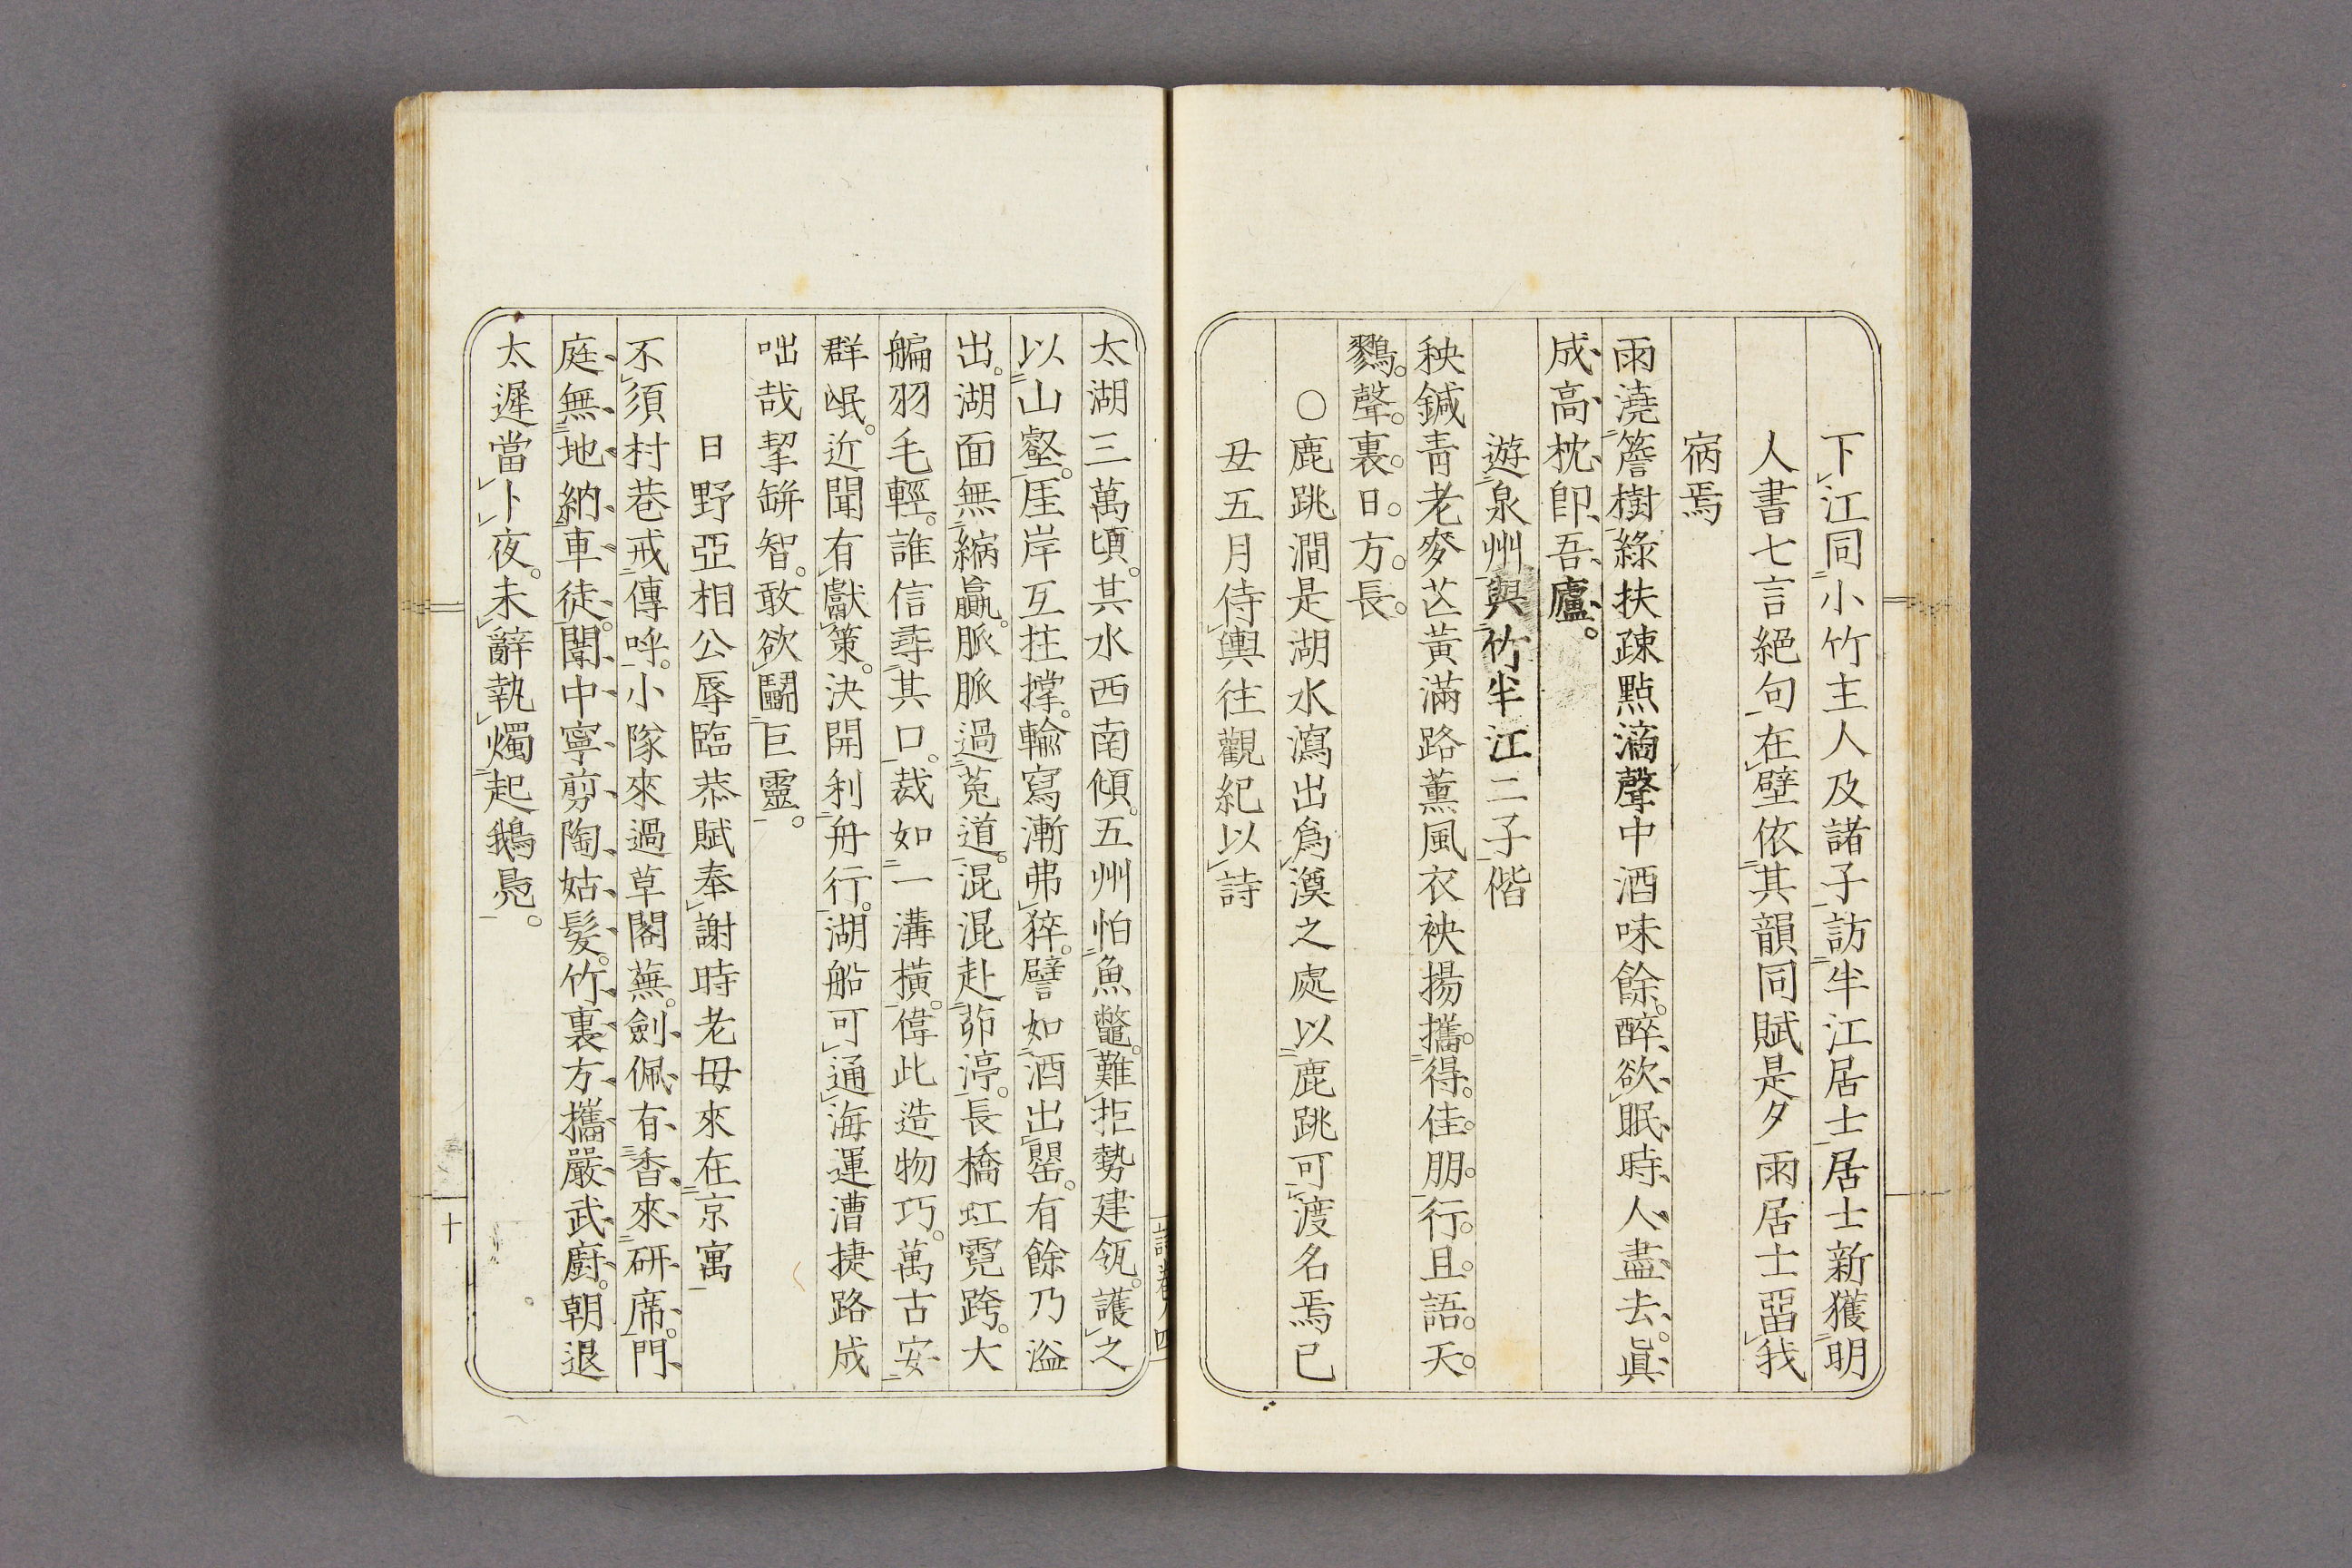 下江同小竹主人及諸子訪半江居士居士新獲明
人書七言絕句在壁依其韻同賦是夕雨居士畱我
宿焉
雨澆簷樹綠扶疎點滴聲中酒味餘。醉欲眠時人盡去。眞
成高枕卽吾廬。
遊泉州與竹半江二子偕
秧鍼靑老麥芒黃滿路薰風衣袂揚攜得佳朋行且語天
鷚聲裏日方長。
○鹿跳澗是湖水瀉出爲澳之處以鹿跳可渡名焉已
丑五月侍輿往觀紀以詩
太湖三萬頃。其水西南傾。五州怕魚鼈。難拒勢建瓴。護之
以山壑。厓岸互拄撑。輸寫漸弗猝。譬如酒出罌。有餘乃溢
出。湖面無縮贏。脈脈過菟道。混混赴茆渟。長橋虹霓跨。大
艑羽毛輕。誰信尋其口。裁如一溝橫。偉此造物巧。萬古安
群氓。近聞有獻策。決開利舟行。湖船可通海運漕捷路成
咄哉挈缾智。敢欲鬭巨靈。
日野亞相公辱臨恭賦奉謝時老母來在京寓
不須村巷戒傳呼。小隊來過草閣蕪。劍佩有香來硏席。門
庭無地納車徒。闈中寧剪陶姑髮。竹裏方攜嚴武廚。朝退
太遲當卜夜。未辭執燭起鵝鳧。
詩卷八 四
十